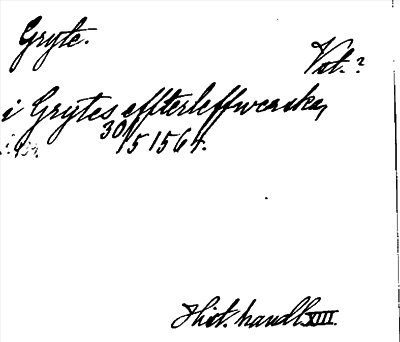 Gryte.
Vst.?
i Grytes effterleffwerska,
30/5 1564.
Hist. handl. XIII.